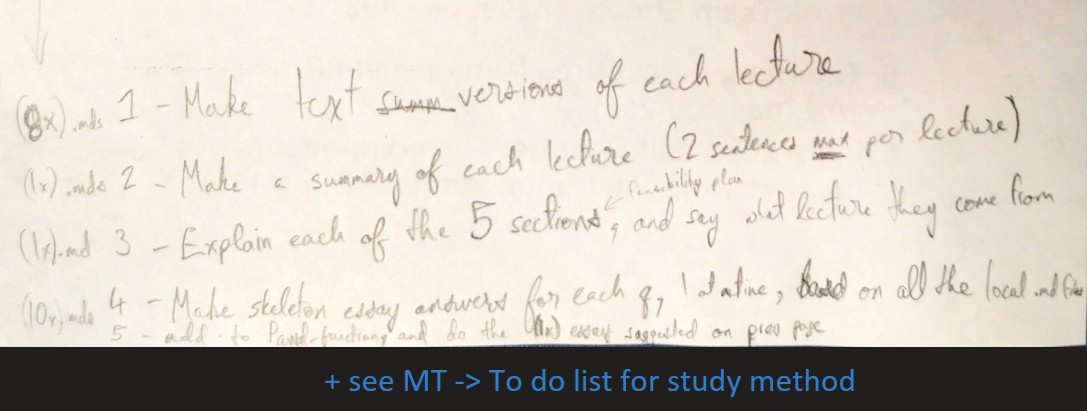 (8x).mds 1 - Make text summ versions of each lecture
(1x).mds 2 - Make a summary of each lecture (2 sentences max per lecture)
feasibility plan
(1x).md 3 - Explain each of the 5 sections, and say what lecture they come from
(10x).mds 4 - Make skeleton essay answers for each q, 1 at a time, based on all the local .md files
5 - add to and do the (1x) essay suggested on prev page
+ see MT -> To do list for study method